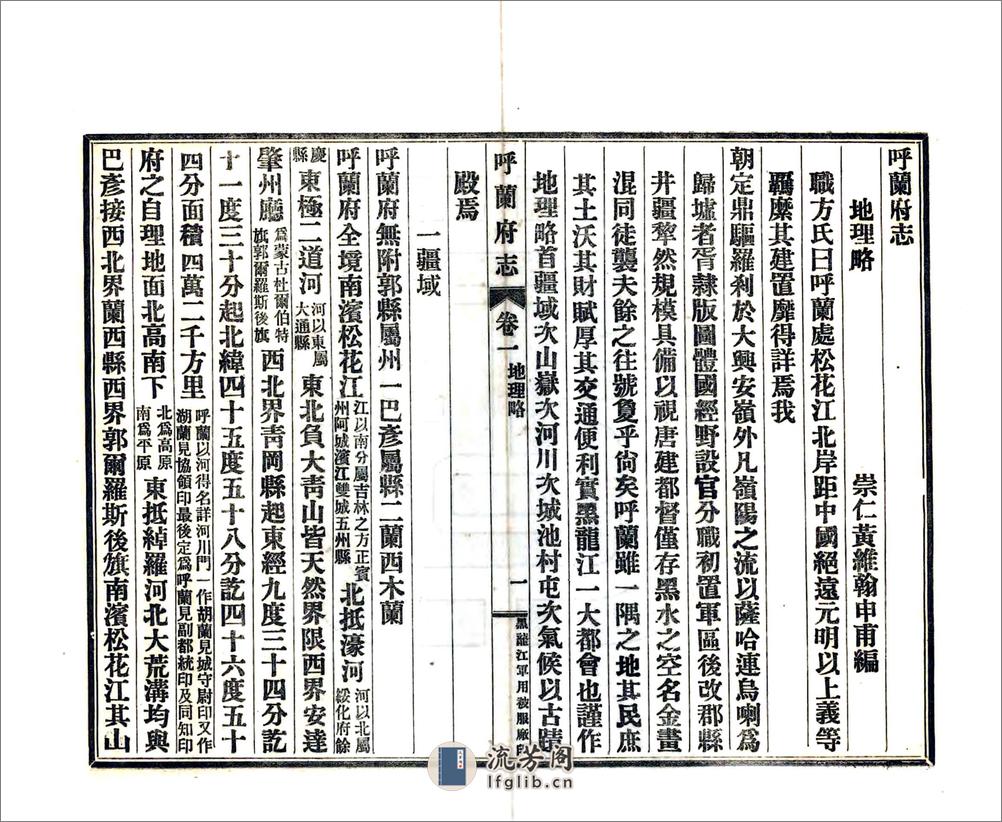 呼蘭府志
地理略
崇仁黃維翰申甫編
職方氏曰呼蘭處松花江北岸距中國絕遠元明以上義等
羈縻其建置靡得詳焉我
朝定鼎驅羅剎於大興安嶺外凡嶺陽之流以薩哈連烏喇為
歸墟者胥隸版圖體國經野設官分職初置軍區後改郡縣
井疆犂然規模具備以視唐建都督僅存黑水之空名金畫
混同徒襲夫餘之往號敻乎尚矣呼蘭雖一隅之地其民庶
其土沃其財賦厚其交通便利實黑龍江一大都會也謹作
地理略首疆域次山嶽次河川次城池村屯次氣候以古蹟
呼蘭府志
卷一
地理略
一
黑龍江軍用被服廠印
殿焉
一疆域
呼蘭府無附郭縣屬州一巴彥屬縣二蘭西木蘭
呼蘭府全境南濱松花江江以南分屬吉林之方正賓州阿城濱江雙城五州縣北抵濠河河以北屬綏化府餘
慶縣東極二道河河以東屬大通縣東北負大青山皆天然界限西界安達
肇州廳為蒙古杜爾伯特旗郭爾羅斯後旗西北界青岡縣起東經九度三十四分訖
十一度三十分起北緯四十五度五十八分訖四十六度五十
四分面積四萬二千方里呼蘭以河得名詳河川門一作胡蘭見城守尉印又作湖蘭見協領印最後定為呼蘭見副都統印及同知印
府之自理地面北高南下北為高原南為平原東抵綽羅河北大荒溝均與
巴彥接西北界蘭西縣西界郭爾羅斯後旗南濱松花江其山
流芳阁
lfglib.cn